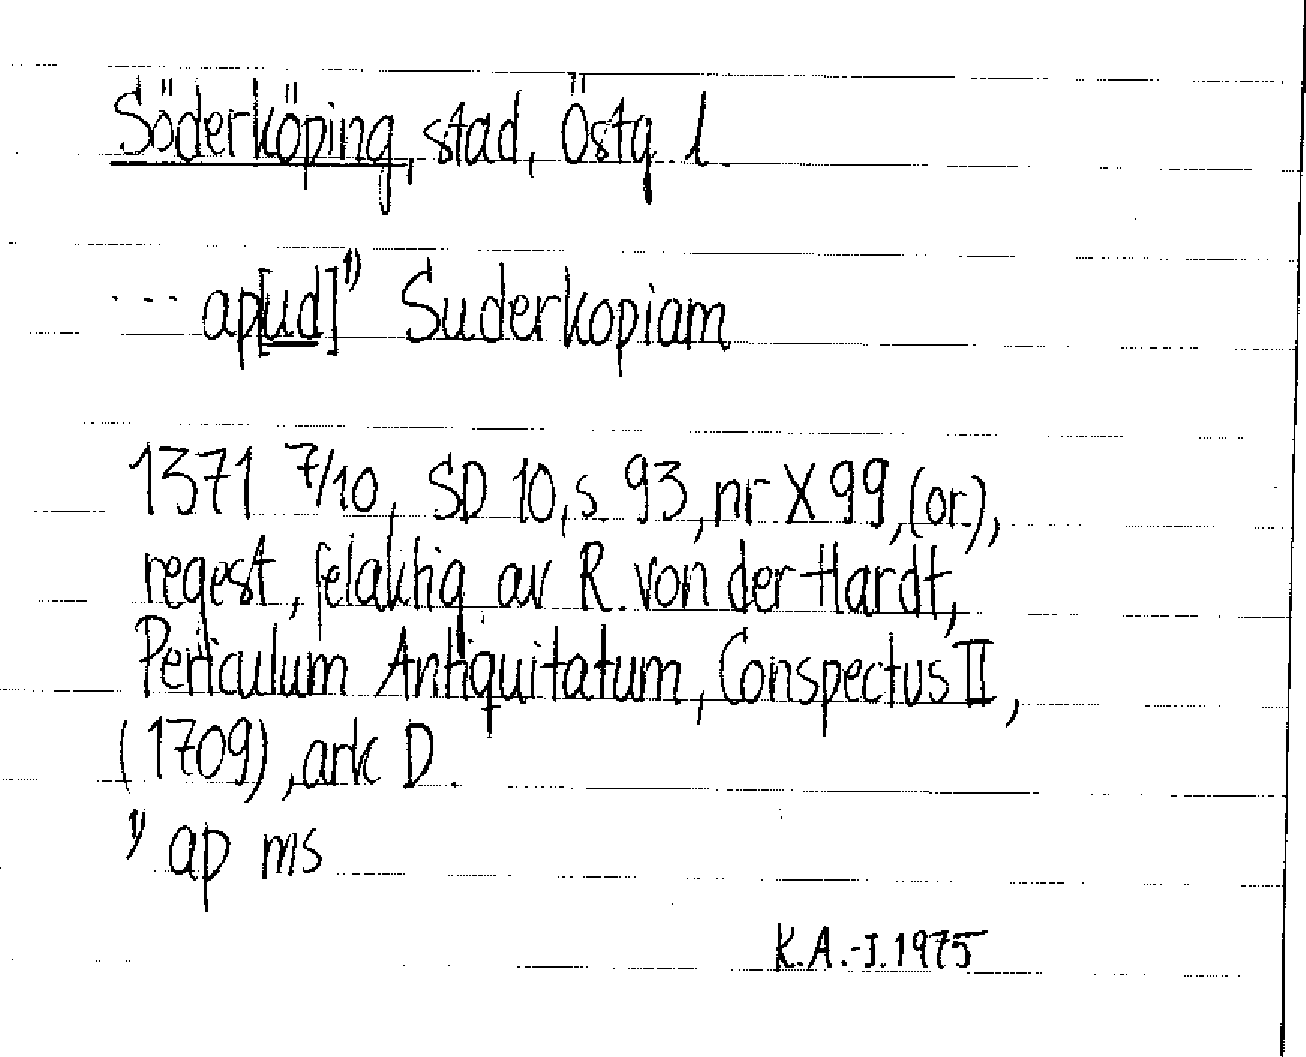 Söderköping, stad, Östg. l.
--- ap[ud]¹⁾ Suderkopiam
1371 7/10, SD 10, s. 93, nr X 99, (or.),
regest, felaktig av R. von der Hardt,
Periculum Antiquitatum, Conspectus II,
(1709), ark D.
¹⁾ ap ms
K.A.-I. 1975